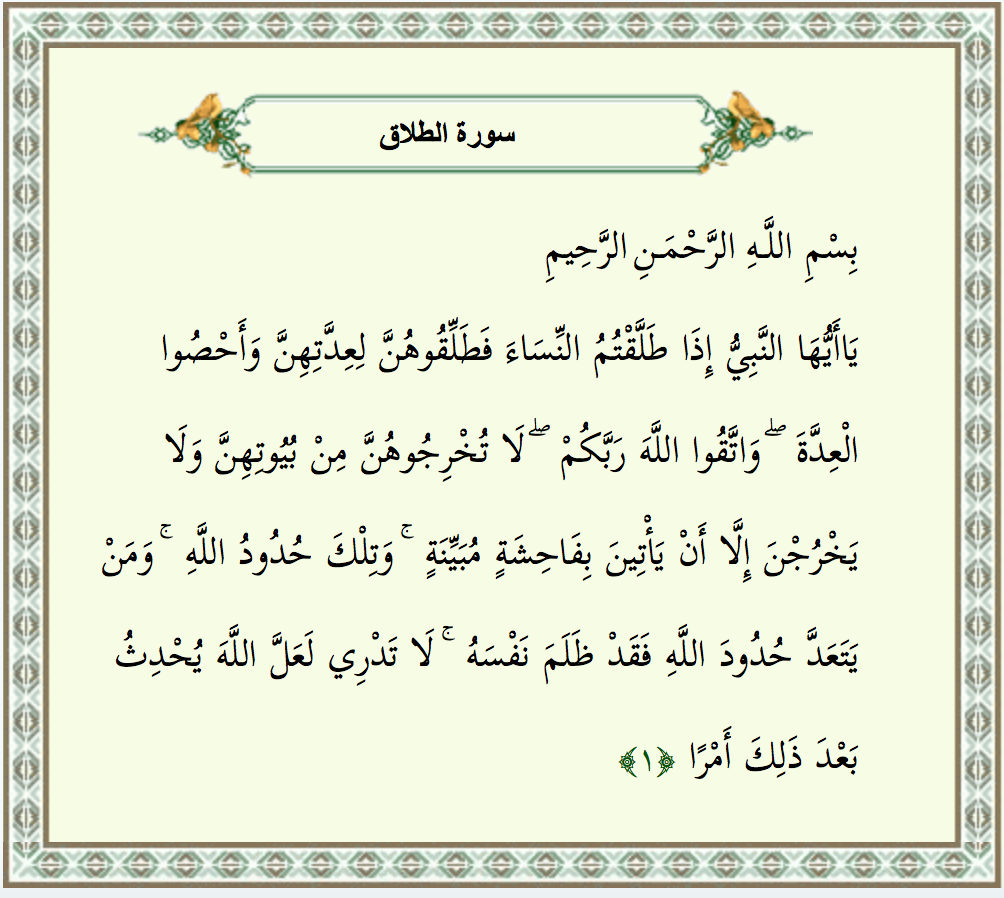 سورة الطلاق
بِسْمِ اللَّـهِ الرَّحْمَـنِ الرَّحِيمِ
يَاأَيُّهَا النَّبِيُّ إِذَا طَلَّقْتُمُ النِّسَاءَ فَطَلِّقُوهُنَّ لِعِدَّتِهِنَّ وَأَحْصُوا
الْعِدَّةَ ۖ وَاتَّقُوا اللَّهَ رَبَّكُمْ ۖ لَا تُخْرِجُوهُنَّ مِنْ بُيُوتِهِنَّ وَلَا
يَخْرُجْنَ إِلَّا أَنْ يَأْتِينَ بِفَاحِشَةٍ مُبَيِّنَةٍ ۚ وَتِلْكَ حُدُودُ اللَّهِ ۚ وَمَنْ
يَتَعَدَّ حُدُودَ اللَّهِ فَقَدْ ظَلَمَ نَفْسَهُ ۚ لَا تَدْرِي لَعَلَّ اللَّهَ يُحْدِثُ
بَعْدَ ذَلِكَ أَمْرًا ﴿١﴾